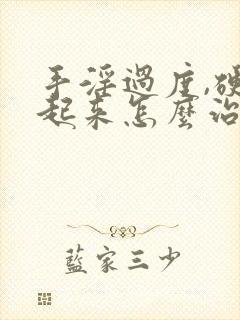 手淫過度,硬
起來怎麼治
藍家三少